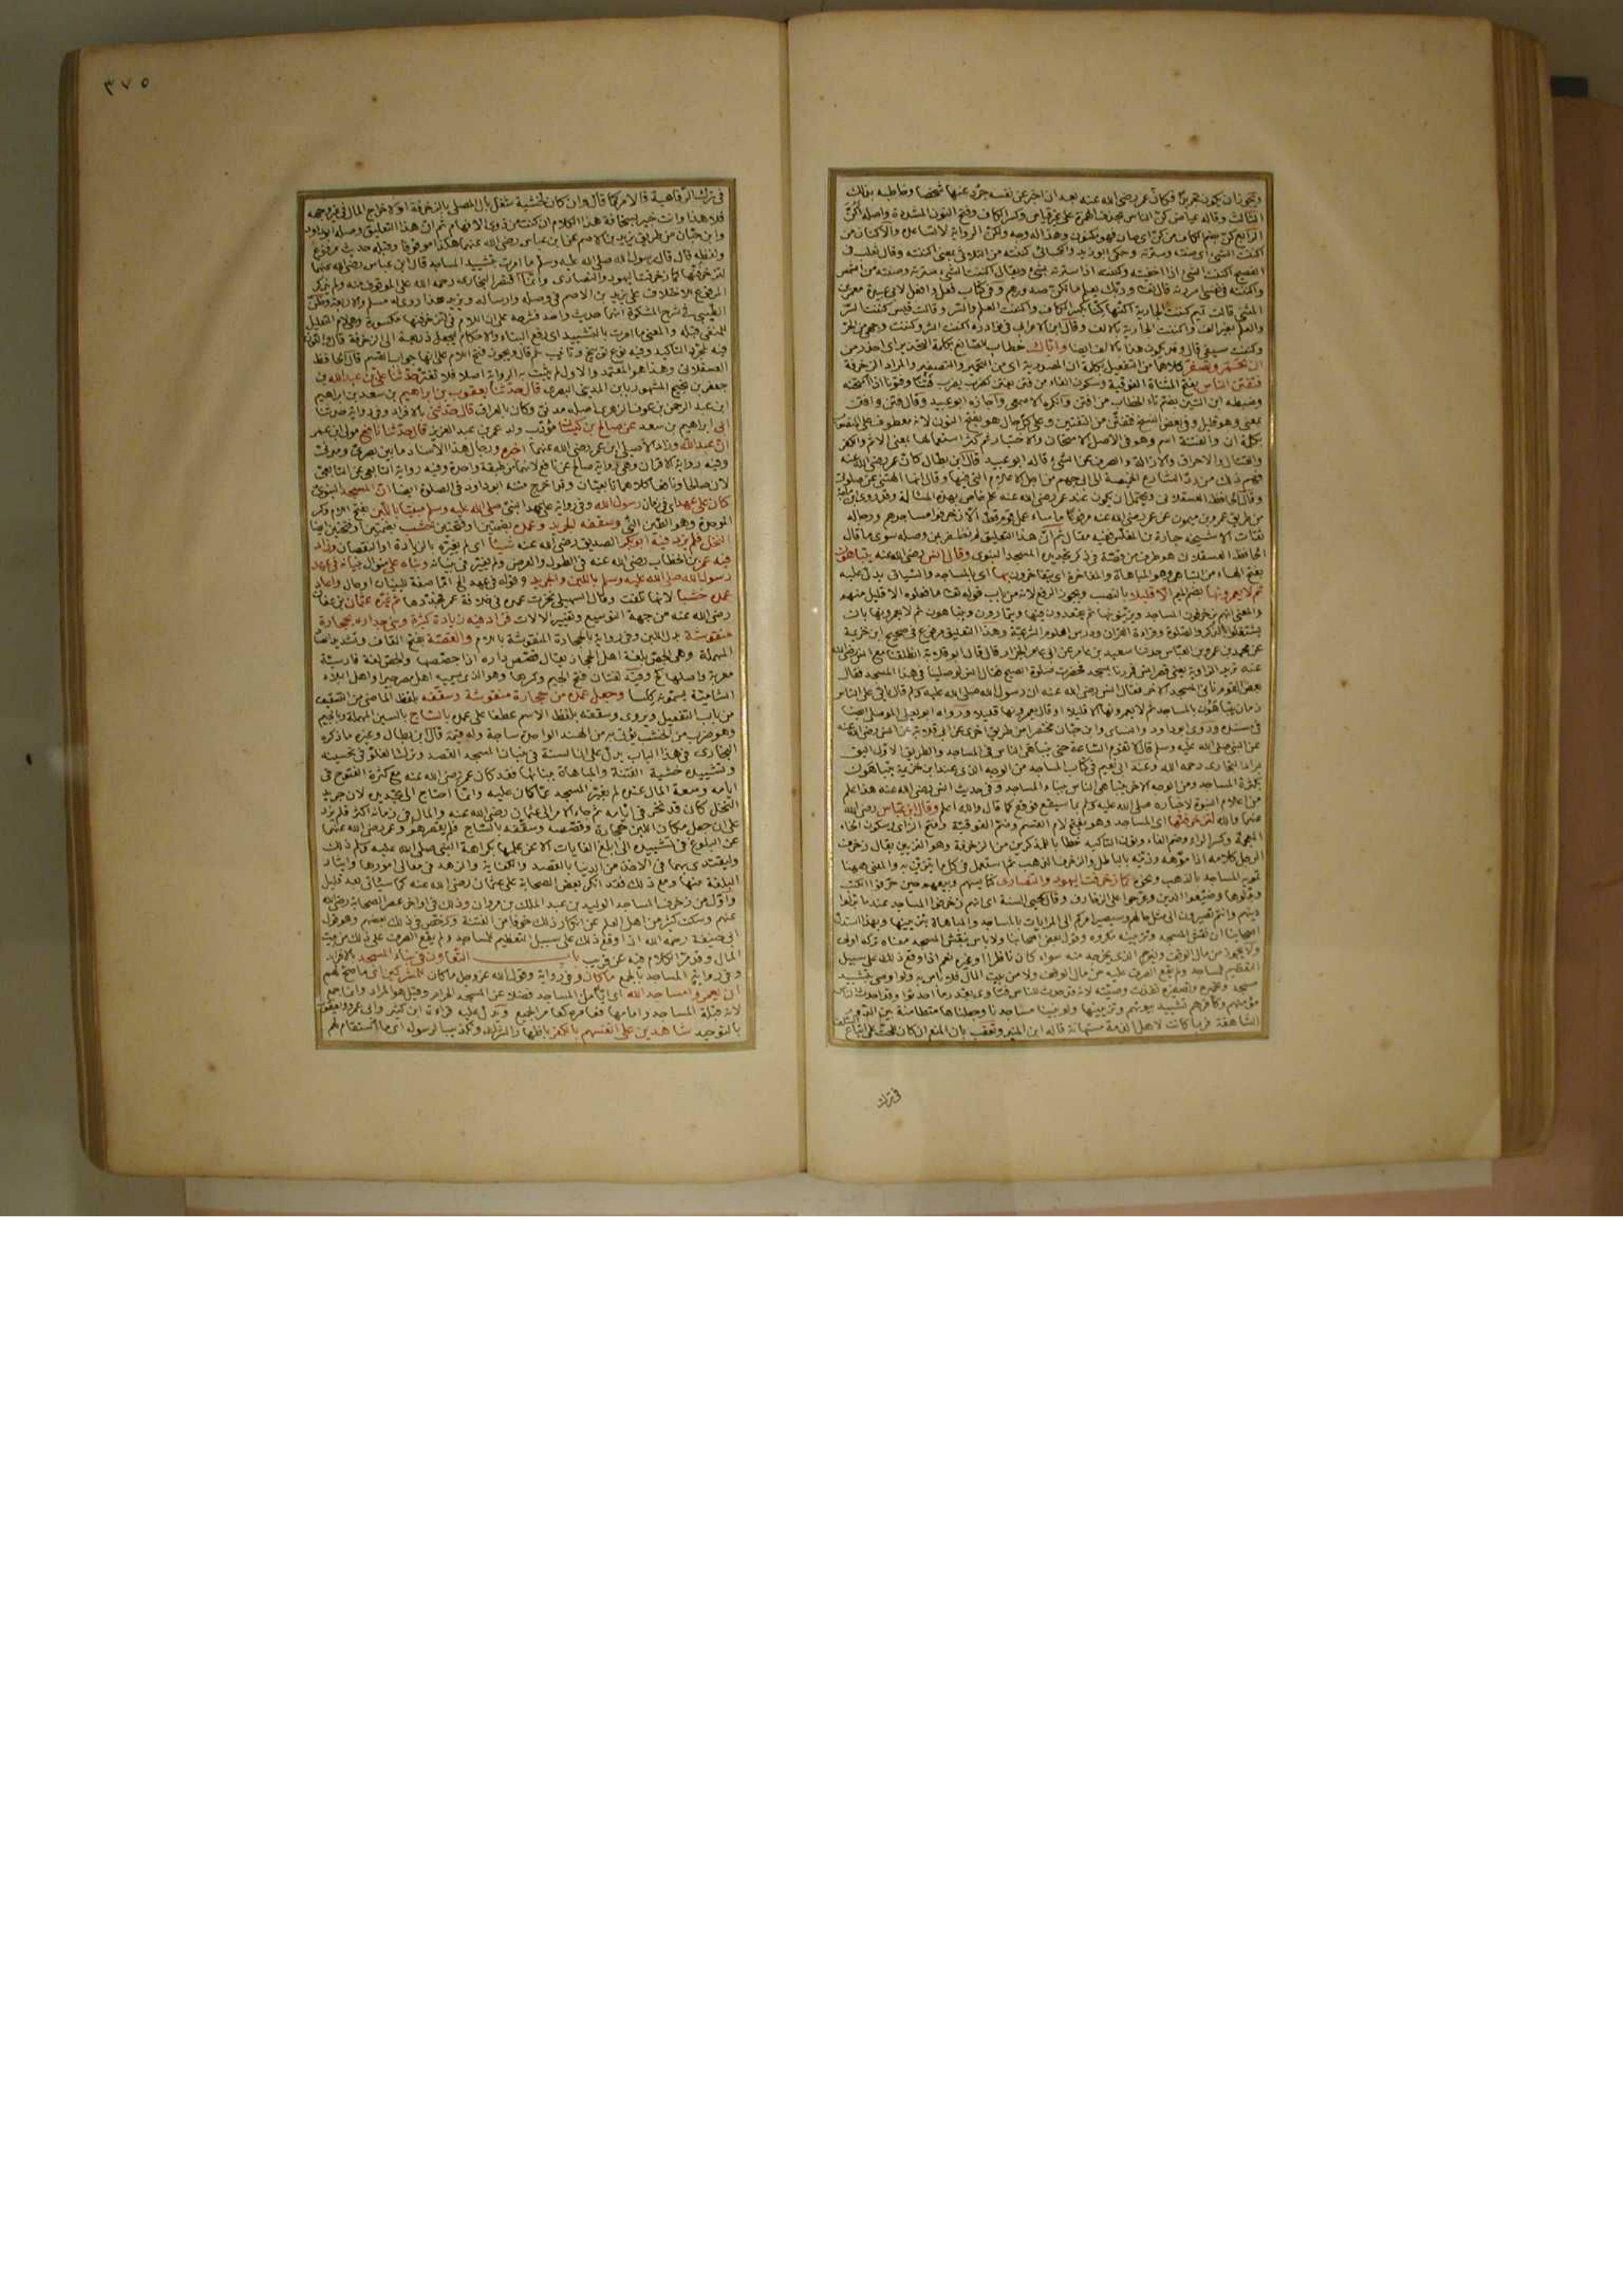 ويجوز ان يكون تجريدا فكأن عمر رضي الله عنه بعد ان اخبر عن نفسه جرد عنها شخصا وخاطبه بذلك
الثالث وقاله عياض كن الناس بحذف الهمزة على غير قياس وكسر الكاف وفتح النون المشددة واصله اكن
الرابع كن بضم الكاف من كن اى صان فهو مكنون وهذا له وجه ولكن الرواية لا تساعده والاكنان من
اكننت الشئ اى صنته وسترته وحكى ابو زيد والكسائى كننته من الثلاثى بمعنى اكننته وقال ثعلب فى
الفصيح اكننت الشئ اذا اخفيته وكننته اذا سترته بشئ ويقال كننت الشئ سترته وصنته من الشمس
واكننته فى نفسى اسررته قال تعالى وربك يعلم ما تكن صدورهم وفى كتاب فعل وافعل لابى عبيدة معمر بن
المثنى قالت تميم كننت الجارية اكنها كنا بكسر الكاف واكننت العلم والسر وقالت قيس كننت السر
والعلم بغير الف واكننت الجارية بالالف وقال ابن الاعرابى فى نوادره اكننت السر وكننت وجهى من الحر
وكننت سيفى قال وقد يكون هذا بالالف ايضا واياك خطاب للصانع بكلمة التحذير اى احذر من
ان تحمر وتصفر كلاهما من التفعيل بكلمة ان المصدرية اى من التحمير والتصفير والمراد الزخرفة
فتفتن الناس بفتح المثناة الفوقية وسكون الفاء من فتن يفتن كضرب يضرب فتنا وفتونا اذا امتحنه
وضبطه ابن التين بضم تاء الخطاب من افتن وانكره الاصمعى واجازه ابو عبيد وقال فتن وافتن
بمعنى وهو قليل وفى بعض النسخ فتفتن من التفتين وعلى كل حال هو بفتح النون لانه معطوف على المنصوب
بكلمة ان والفتنة اسم وهو فى الاصل الامتحان والاختبار ثم كثر استعمالها بمعنى الاثم والكفر
والقتال والاحراق والازالة والصرف عن الشئ قاله ابو عبيد قال ابن بطال كان عمر رضي الله عنه
فهم ذلك من رد الشارع الخميصة الى ابى جهم من اجل الاعلام التى فيها وقال انها الهتنى عن صلوتى
وقال الحافظ العسقلانى ويحتمل ان يكون عند عمر رضي الله عنه علم خاص بهذه المسألة وقد روى ابن ماجة
من طريق عمرو بن ميمون عن عمر رضي الله عنه مرفوعا ما ساء عمل قوم قط الا زخرفوا مساجدهم ورجاله
ثقات الا شيخه جبارة بن المغلس ففيه مقال ثم ان هذا التعليق لم نظفر بمن وصله سوى ما قال
الحافظ العسقلانى هو طرف من قصة فى ذكر تجديد المسجد النبوى وقال انس رضي الله عنه يتباهون
بفتح الهاء من التباهى وهو المباهاة والمفاخرة اى يتفاخرون بها اى بالمساجد والسياق يدل عليه
ثم لا يعمرونها بضم الميم الا قليلا بالنصب ويجوز الرفع لانه من باب قوله تعالى ما فعلوه الا قليل منهم
والمعنى انهم يزخرفون المساجد ويزينونها ثم يقعدون فيها ويتمارون ويتباهون ثم لا يعمرونها بان
يشتغلوا بالذكر والصلوة وقراءة القرآن ودرس العلوم الشرعية وهذا التعليق مرفوع فى صحيح ابن خزيمة
عن محمد بن عمرو بن العباس حدثنا سعيد بن عامر عن ابى عامر الخزاز قال قال ابو قلابة انطلقنا مع انس رضي الله
عنه نريد الزاوية يعنى قصر انس فمررنا بمسجد فحضرت صلوة الصبح فقال انس لو صلينا فى هذا المسجد فقال
بعض القوم نأتى المسجد الآخر فقال انس رضي الله عنه ان رسول الله صلى الله عليه وسلم قال يأتى على الناس
زمان يتباهون بالمساجد ثم لا يعمرونها الا قليلا او قال يعمرونها قليلا ورواه ابو يعلى الموصلى ايضا
فى مسنده وروى ابو داود والنسائى وابن حبان مختصرا من طريق اخرى عن ابى قلابة عن انس رضي الله عنه
عن النبى صلى الله عليه وسلم قال لا تقوم الساعة حتى يتباهى الناس فى المساجد والطريق الاول اليق
بمراد البخارى رحمه الله وعند ابى نعيم فى كتاب المساجد من الوجه الذى عند ابن خزيمة يتباهون
بكثرة المساجد ومن الوجه الآخر يتباهى الناس ببناء المساجد وفى حديث انس رضي الله عنه هذا علم
من اعلام النبوة لاخباره صلى الله عليه وسلم بما سيقع فوقع كما قال والله اعلم وقال ابن عباس رضي الله
عنهما والله لتزخرفنها اى المساجد وهو بفتح لام القسم وضم الفوقية وفتح الزاى وسكون الخاء
المعجمة وكسر الراء وضم الفاء ونون التأكيد خطابا للمذكرين من الزخرفة وهو التزيين يقال زخرف
الرجل كلامه اذا موهه وزينه بالباطل والزخرف الذهب ثم استعمل فى كل ما يتزين به والمعنى ههنا
تمويه المساجد بالذهب ونحوه كما زخرفت اليهود والنصارى كنائسهم وبيعهم حين حرفوا الكتب
وبدلوها وضيعوا الدين وعرجوا على الزخارف وقال محيى السنة اى انهم زخرفوا المساجد عند ما بدلوا
دينهم وانتم تصيرون الى مثل حالهم وسيصير امركم الى المراياة بالمساجد والمباهاة بتزيينها وبهذا استدل
اصحابنا ان نقش المسجد وتزيينه مكروه وقول بعض اصحابنا ولا بأس بنقش المسجد معناه تركه اولى
ولا يجوز من مال الوقف ويغرم الذى يخرجه منه سواء كان ناظرا او غيره نعم اذا وقع ذلك على سبيل
التعظيم للمساجد ولم يقع الصرف عليه من مال الوقف ولا من بيت المال فلا بأس به ولو اوصى بتشييد
مسجد وتحميره وتصفيره نفذت وصيته لانه قد حدث للناس فتاوى بقدر ما احدثوا وقد احدث الناس
مؤمنهم وكافرهم تشييد بيوتهم وتزيينها ولو بنينا مساجدنا وجعلناها متطامنة بين الدور
الشاهقة وربما كانت لاهل الذمة مستهانة قاله ابن المنير وتعقب بان المنع ان كان للحث على اتباع السلف
فى ترك
٣٧٥
فى ترك الرفاهية فالامر كما قال وان كان لخشية شغل بال المصلى بالزخرفة او لاخراج المال فى غير وجهه
فلا هذا وانت خبير بسخافة هذا الكلام ان كنت من ذوى الافهام ثم ان هذا التعليق وصله ابو داود
وابن حبان من طريق يزيد بن الاصم عن ابن عباس رضي الله عنهما هكذا موقوفا وقبله حديث مرفوع
ولفظه قال قال رسول الله صلى الله عليه وسلم ما امرت بتشييد المساجد قال ابن عباس رضي الله عنهما
لتزخرفنها كما زخرفت اليهود والنصارى وانما اقتصر البخارى رحمه الله على الموقوف منه ولم يذكر
المرفوع للاختلاف على يزيد بن الاصم فى وصله وارساله ويزيد هذا روى له مسلم والاربعة وظن
الطيبى فى شرح المشكوة انهما حديث واحد فشرحه على ان اللام فى لتزخرفنها مكسورة وهى لام التعليل
للمنفى قبله والمعنى ما امرت بالتشييد اى رفع البناء والاحكام ليجعل ذريعة الى الزخرفة قال والنون
فيه لمجرد التأكيد وفيه نوع توبيخ وتأنيب ثم قال ويجوز فتح اللام على انها جواب القسم قال الحافظ
العسقلانى وهذا هو المعتمد والاول لم يثبت به الرواية اصلا فلا تغتر حدثنا على بن عبد الله بن
جعفر بن نجيح المشهور بابن المدينى البصرى قال حدثنا يعقوب بن ابراهيم بن سعد بن ابراهيم
ابن عبد الرحمن بن عوف الزهرى اصله مدنى وكان بالعراق قال حدثنى بالافراد وفى رواية حدثنا
ابى ابراهيم بن سعد عن صالح بن كيسان مؤدب ولد عمر بن عبد العزيز قال حدثنا نافع مولى ابن عمر
ان عبد الله وزاد الاصيلى ابن عمر رضي الله عنهما اخبره ورجال هذا الاسناد ما بين بصرى ومدنى
وفيه رواية الاقران وهى رواية صالح عن نافع لانهما من طبقة واحدة وفيه رواية التابعى عن التابعى
لان صالحا ونافعا كلاهما تابعيان وقد اخرج متنه ابو داود فى الصلوة ايضا ان المسجد النبوى
كان على عهد اى فى زمان رسول الله وفى رواية على عهد النبى صلى الله عليه وسلم مبنيا باللبن بفتح اللام وكسر
الموحدة وهو الطين النئ وسقفه الجريد وعمده بضمتين او بفتحتين خشب بضمتين او بفتحتين ايضا
النخل فلم يزد فيه ابو بكر الصديق رضي الله عنه شيئا اى لم يغيره بالزيادة او النقصان وزاد
فيه عمر بن الخطاب رضي الله عنه فى الطول والعرض ولم يغير فى بنيانه وبناه على منوال بنيانه فى عهد
رسول الله صلى الله عليه وسلم باللبن والجريد وقوله فى عهد الخ اما صفة للبنيان او حال واعاد
عمده خشبا لانها تلفت وقال السهيلى نخرت عمده فى خلافة عمر فجددها ثم غيره عثمان بن عفان
رضي الله عنه من جهة التوسيع وتغيير الآلات فزاد فيه زيادة كثيرة وبنى جداره بحجارة
منقوشة بدل اللبن وفى رواية بالحجارة المنقوشة باللام والقصة بفتح القاف وتشديد الصاد
المهملة وهى الجص بلغة اهل الحجاز يقال قصص داره اذا جصصها والجص لغة فارسية
معربة واصلها كج وفيه لغتان فتح الجيم وكسرها وهو الذى يسميه اهل مصر جيرا واهل البلاد
الشامية يسمونه كلسا وجعل عمده من حجارة منقوشة وسقفه بلفظ الماضى من التسقيف
من باب التفعيل ويروى وسقفه بلفظ الاسم عطفا على عمده بالساج بالسين المهملة والجيم
وهو ضرب من الخشب يؤتى به من الهند الواحدة ساجة وله قيمة قال ابن بطال وغيره ما ذكره
البخارى فى هذا الباب يدل على ان السنة فى بنيان المسجد القصد وترك الغلو فى تحسينه
وتشييده خشية الفتنة والمباهاة ببنائها فقد كان عمر رضي الله عنه مع كثرة الفتوح فى
ايامه وسعة المال عنده لم يغير المسجد عما كان عليه وانما احتاج الى تجديده لان جريد
النخل كان قد نخر فى ايامه ثم جاء الامر الى عثمان رضي الله عنه والمال فى زمانه اكثر فلم يزد
على ان جعل مكان اللبن حجارة وقصصه وسقفه بالساج فلم يقصر هو وعمر رضي الله عنهما
عن البلوغ فى تشييده الى ابلغ الغايات الا عن علمهما بكراهة النبى صلى الله عليه وسلم ذلك
وليقتدى بهما فى الاخذ من الدنيا بالقصد والكفاية والزهد فى معالى امورها وايثار
البلغة منها ومع ذلك فقد انكر بعض الصحابة على عثمان رضي الله عنه كما سيأتى بعد قليل
واول من زخرف المساجد الوليد بن عبد الملك بن مروان وذلك فى اواخر عصر الصحابة رضي الله
عنهم وسكت كثير من اهل العلم عن انكار ذلك خوفا من الفتنة ورخص فى ذلك بعضهم وهو قول
ابى حنيفة رحمه الله اذا وقع ذلك على سبيل التعظيم للمساجد ولم يقع الصرف على ذلك من بيت
المال وقد مر الكلام فيه عن قريب باب التعاون فى بناء المسجد بالافراد
وفى رواية المساجد بالجمع ما كان وفى رواية وقول الله عز وجل ما كان للمشركين اى ما صح لهم
ان يعمروا مساجد الله اى شيئا من المساجد فضلا عن المسجد الحرام وقيل هو المراد وانما جمع
لانه قبلة المساجد وامامها فعامره كعامر الجميع ويدل عليه قراءة ابن كثير وابى عمرو ويعقوب
بالتوحيد شاهدين على انفسهم بالكفر باظهار الشرك وتكذيب الرسول اى ما استقام لهم